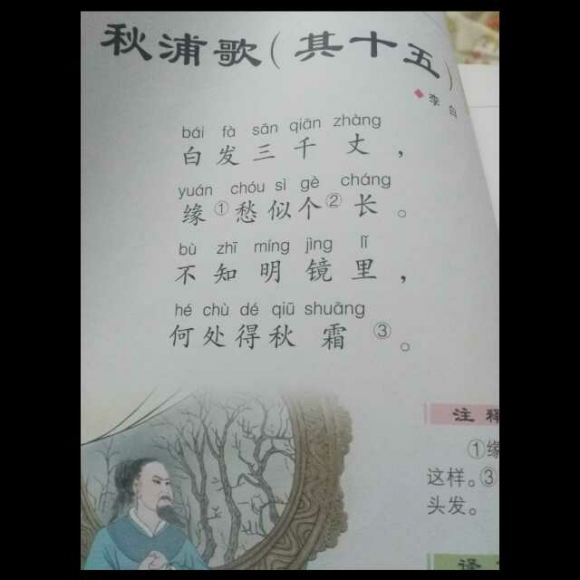 秋浦歌(其十五)
◆李白
bái fà sān qiān zhàng
白发三千丈，
yuán chóu sì gè cháng
缘①愁似个②长。
bù zhī míng jìng lǐ
不知明镜里，
hé chù dé qiū shuāng
何处得秋霜③。
注释
①缘
这样。③
头发。
译